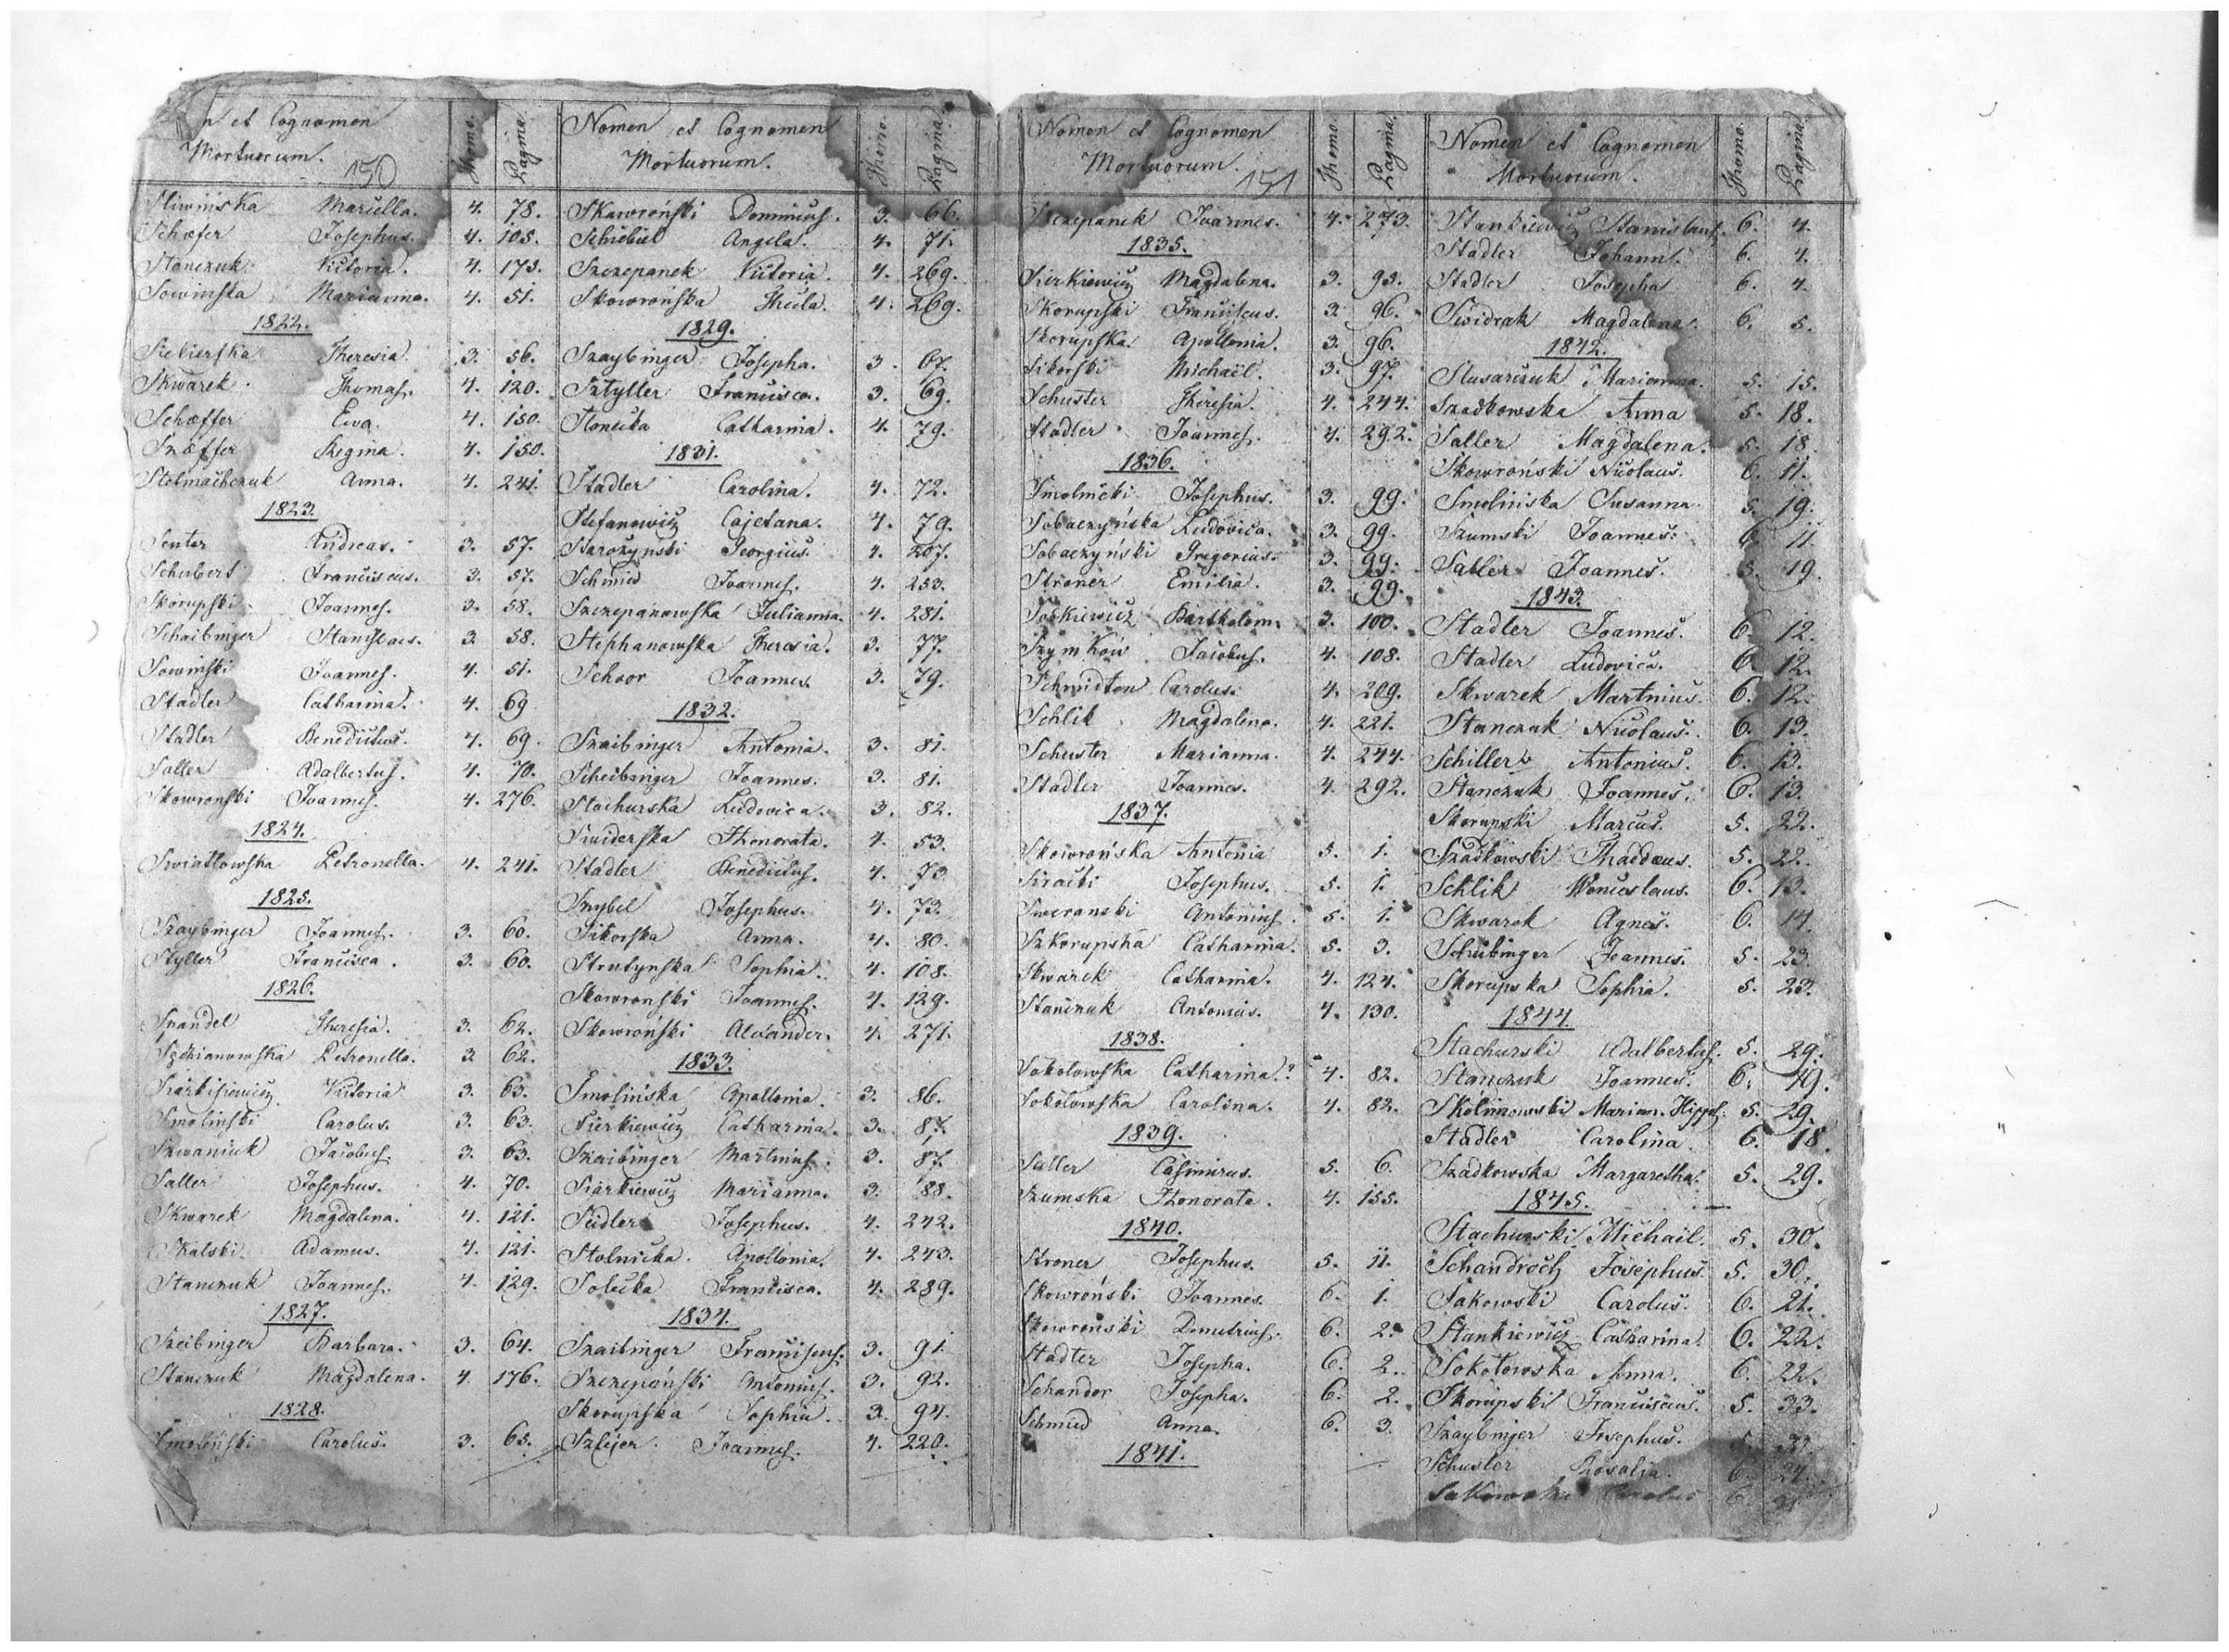 n et Cognomen
Mortuorum. 150
Thomo. Pagina.
Sliwińska Marcella. 4. 78.
Schæfer Josephus. 4. 105.
Stanczuk Victoria. 4. 173.
Sowinska Marianna. 4. 51.
1822.
Siekierska Theresia. 3. 56.
Skwarek Thomas. 4. 120.
Schæffer Eva. 4. 150.
Szæffer Regina. 4. 150.
Stelmaschczuk Anna. 4. 241.
1823.
Senter Andreas. 3. 57.
Schubert Franciscus. 3. 57.
Skorupski Joannes. 3. 58.
Schaibinger Stanislaus. 3. 58.
Sowinski Joannes. 4. 51.
Stadler Catharina. 4. 69
Stadler Benedictus. 4. 69.
Saller Adalbertus. 4. 70.
Skowronski Joannes. 4. 276.
1824.
Swiatlowska Petronella. 4. 241.
1825.
Szaybinger Joannes. 3. 60.
Styller Francisca. 3. 60.
1826.
Spandel Theresia. 3. 62.
Petronella. 3. 62.
Victoria 3. 63.
Smolinski Carolus. 3. 63.
Szwaniuk Jacobus. 3. 63.
Saller Josephus. 4. 70.
Skwarek Magdalena. 4. 121.
Skalski Adamus. 4. 121.
Stanczuk Joannes. 4. 129.
1827.
Szeibinger Barbara. 3. 64.
Stanczuk Magdalena. 4. 176.
1828.
Smoleński Carolus. 3. 65.
Nomen et Cognomen
Mortuorum.
Thomo. Pagina.
Skawroński Dominicus. 3. 66.
Schiebiel Angela. 4. 71.
Szczepanek Victoria. 4. 269.
Skowrońska Thecla. 4. 269.
1829.
Szaybinger Josepha. 3. 67.
Sztyller Francisca. 3. 69.
Slonicka Catharina. 4. 79.
1831.
Stadler Carolina. 4. 72.
Stefanowicz Cajetana. 4. 79.
Starozynski Georgius. 4. 207.
Schmied Joannes. 4. 253.
Szczepanowska Julianna. 4. 281.
Stephanowska Theresia. 3. 77.
Schoor Joannes. 3. 79.
1832.
Szaibinger Antonia. 3. 81.
Scheibenger Joannes. 3. 81.
Stachurska Ludovica. 3. 82.
Swiderska Honorata. 4. 53.
Stadler Benedictus. 4. 73
Szybel Josephus. 4. 73.
Sikorska Anna. 4. 80.
Strutynska Sophia. 4. 108.
Skowronski Joannes. 4. 129.
Skowroński Alexander. 4. 271.
1833.
Smolińska Apollonia. 3. 86.
Sierkiewicz Catharina. 3. 87.
Szeibinger Martinus. 3. 87.
Siarkiewicz Marianna. 3. 88.
Seidler Josephus. 4. 242.
Stolnicka Apollonia. 4. 243.
Solecka Francisca. 4. 289.
1834.
Szaibinger Franciscus. 3. 91.
Szczepański Antonius. 3. 92.
Skorupska Sophia. 3. 94.
Szlejer Joannes. 4. 220.
Nomen et Cognomen
Mortuorum. 151
Thomo. Pagina.
Szczepanek Joannes. 4. 273.
1835.
Sierkiewicz Magdalena. 3. 93.
Skorupski Franciscus. 3. 96.
Skorupska Apollonia. 3. 96.
Sikorski Michael. 3. 97.
Schuster Theresia. 4. 244.
Stadler Joannes. 4. 292.
1836.
Smolnicki Josephus. 3. 99.
Sobaczyńska Ludovica. 3. 99.
Sobaczyński Gregorius. 3. 99.
Stroner Emilia. 3. 99.
Sobkiewicz Bartholom. 3. 100.
Szymków Jacobus. 4. 108.
Schmidten Carolus. 4. 209.
Schlik Magdalena. 4. 221.
Schuster Marianna. 4. 244.
Stadler Joannes. 4. 292.
1837.
Skowrońska Antonia 5. 1.
Siracki Josephus. 5. 1.
Antonius. 5. 1.
Szkorupska Catharina. 5. 3.
Skwarek Catharina. 4. 124.
Stanczuk Antonius. 4. 130.
1838.
Sokolowska Catharina.? 4. 82.
Sokolowska Carolina. 4. 82.
1839.
Saller Casimirus. 5. 6.
Szumska Honorata. 4. 155.
1840.
Stroner Josephus. 5. 11.
Skowroński Joannes. 6. 1.
Skowroński Demetrius. 6. 2.
Stadler Josepha. 6. 2.
Schandor Josepha. 6. 2.
Schmied Anna. 6. 3.
1841.
Nomen et Cognomen
Mortuorum.
Thomo. Pagina.
Stankiewicz Stanislaus. 6. 4.
Stadler Johann. 6. 4.
Stadler Josepha 6. 4.
Swidrak Magdalena. 6. 5.
1842.
Slusarczuk Marianna. 5. 15.
Szadkowska Anna 5. 18.
Saller Magdalena. 5. 18.
Skowroński Nicolaus. 6. 11.
Smolińska Susanna. 5. 19.
Szumski Joannes. 6. 11.
Saller Joannes. 5. 19.
1843.
Stadler Joannes. 6. 12.
Stadler Ludovica. 6. 12.
Skwarek Martinus. 6. 12.
Stanczuk Nicolaus. 6. 13.
Schiller Antonius. 6. 13.
Stanczuk Joannes. 6. 13.
Skorupski Marcus. 5. 22.
Szadkowski Thaddæus. 5. 22.
Schlik Wenceslaus. 6. 13.
Skwarek Agnes. 6. 14.
Scheibinger Joannes. 5. 23.
Skorupska Sophia. 5. 23.
1844.
Stachurski Adalbertus. 5. 29.
Stanczuk Joannes. 6. 19.
Skolimowski Marian. Hippol. 5. 29.
Stadler Carolina 6. 18.
Szadkowska Margaretha. 5. 29.
1845.
Stachurski Michael. 5. 30.
Schandroch Josephus. 5. 30.
Sakowski Carolus. 6. 21.
Stankiewicz Catharina. 6. 22.
Sokołowska Anna. 6. 22.
Skorupski Franciscus. 5. 33.
Szaybinger Josephus.
Schuster Rosalia. 6. 24.
Sakowski Carolus 6.